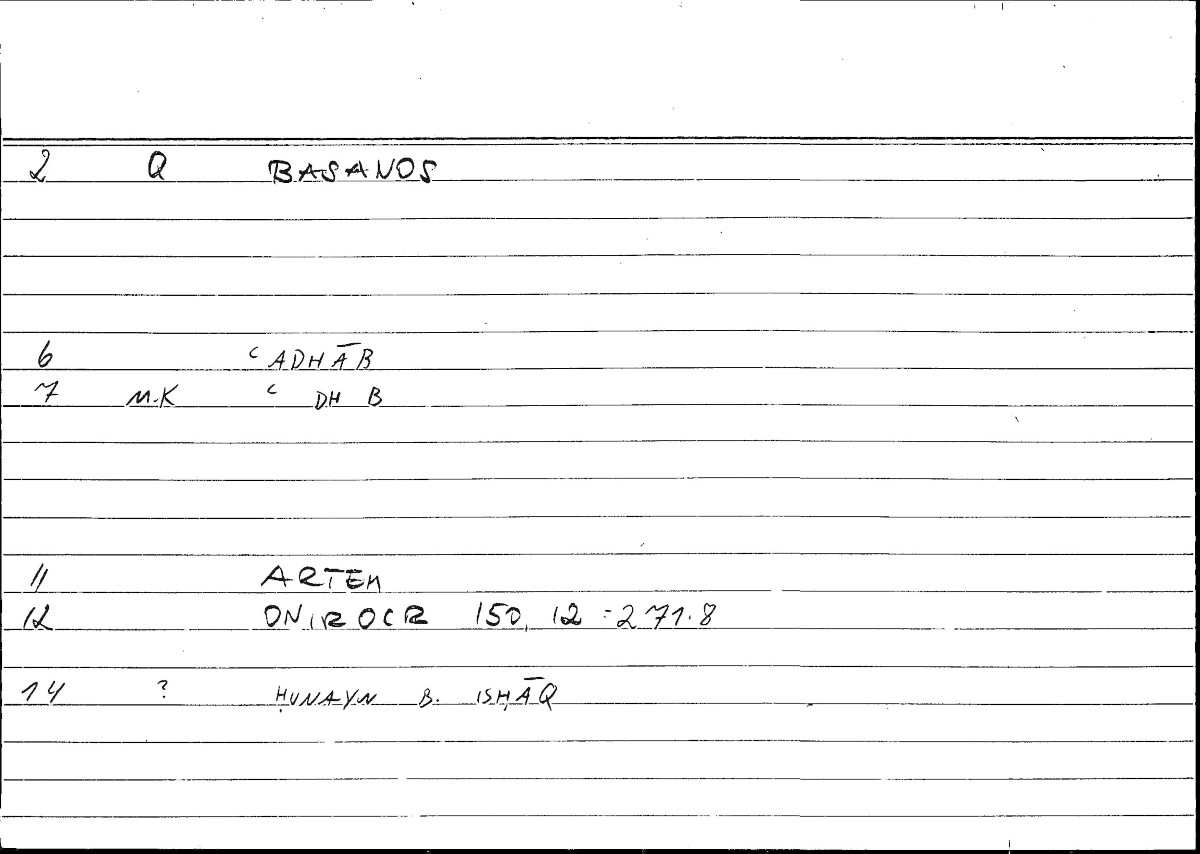 2 Q BASANOS
6 ʿADHĀB
7 M.K ʿ DH B
11 ARTEM
12 ONIROCR 150, 12 = 271.8
14 ? ḤUNAYN B. ISḤĀQ